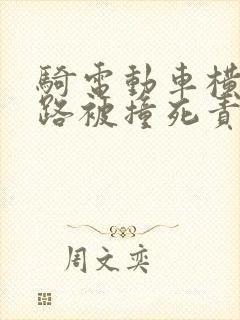 騎電動車橫
路被撞死責
周文奕